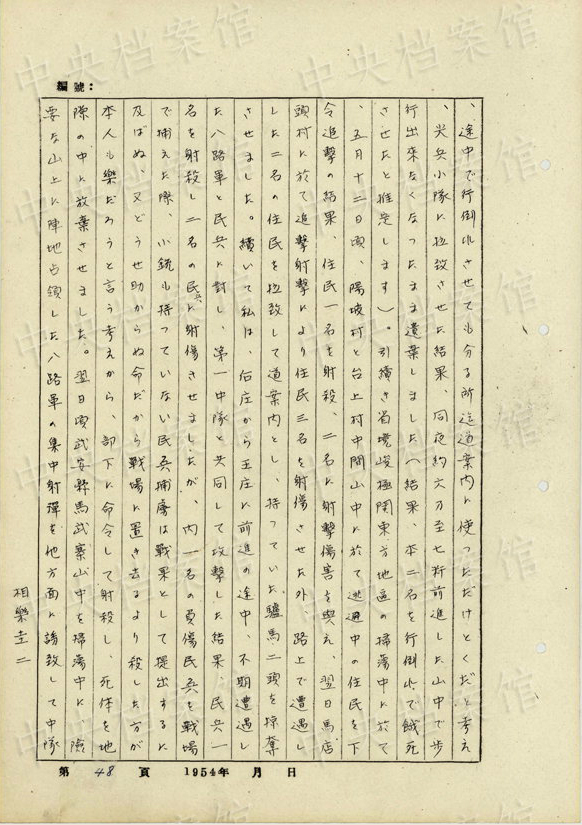 編號：
、途中で行倒れさせても分る所迄道案内に使っただけとくだと考え
、尖兵小隊に拉致させた結果、同夜約六乃至七粁前進した山中で歩
行出来なくなったまま遺棄しました（結果、本二名を行倒れで餓死
させたと推定します）。引続き省境峻極関東方地区の掃蕩中に於て
、五月十二日頃、陽坡村と台上村中間山中に於て逃避中の住民を下
令追撃の結果、住民一名を射殺、二名に射撃傷害を與え、翌日馬店
頭村に於て追撃射撃により住民三名を射傷させた外、路上で遭遇し
した二名の住民を拉致して道案内とし、持っていた驢馬二頭を掠奪
させました。續いて私は、石庄から王庄に前進の途中、不期遭遇し
た八路軍と民兵に対し、第一中隊と共同して攻撃した結果、民兵一
名を射殺し二名の民兵に射傷させましたが、内一名の負傷民兵を戦場
で捕えた際、小銃も持っていない民兵捕虜は戦果として提出するに
及ばぬ、又どうせ助からぬ命だから戦場に置き去るより殺した方が
本人も樂だろうと言う考えから、部下に命令して射殺し、死体を地
隙の中に放棄させました。翌日頃武安縣馬武寨山中を掃蕩中に險
要な山上に陣地占領した八路軍の集中射彈を他方面に誘致して中隊
相樂圭二
第 48 頁 1954年 月 日
中央档案馆